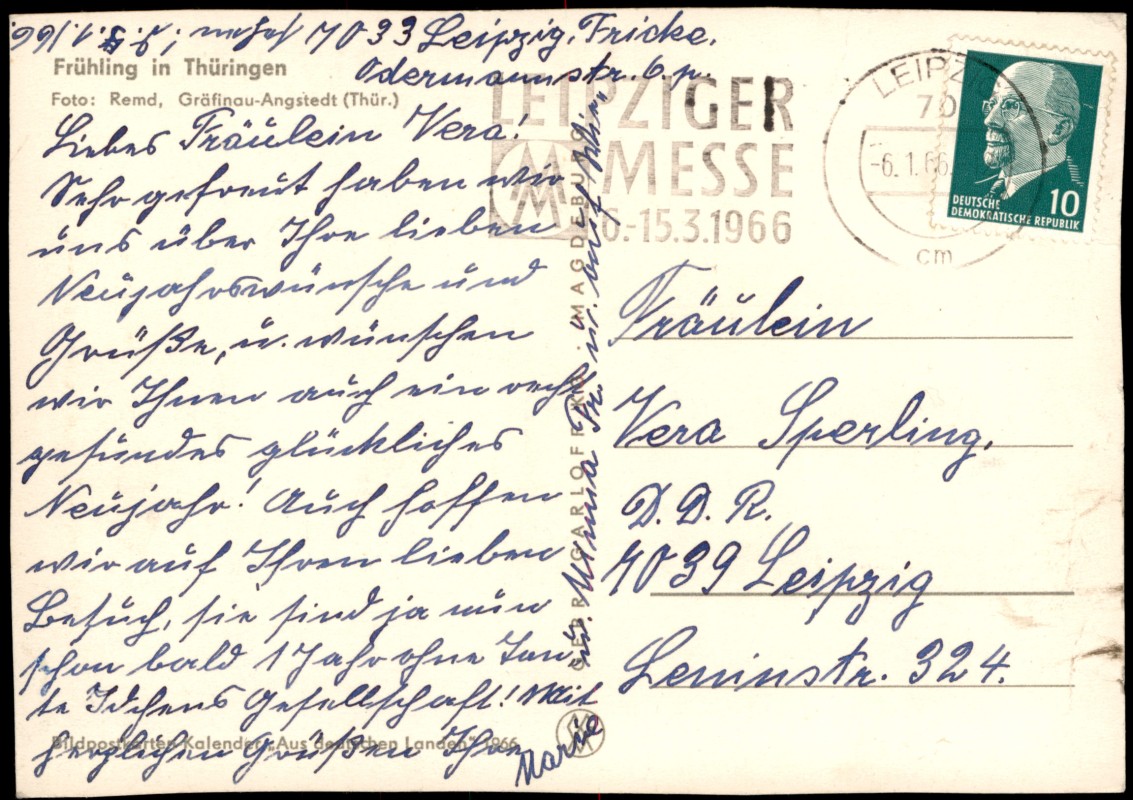 7033 Leipzig, Fricke.
Odermannstr. 6 p.
Frühling in Thüringen
Foto: Remd, Gräfinau-Angstedt (Thür.)
Liebes Fräulein Vera!
Sehr gefreut haben wir
uns über Ihre lieben
Neujahrswünsche und
Grüße, u. wünschen
wir Ihnen auch ein recht
gesundes glückliches
Neujahr! Auch hoffen
wir auf Ihren lieben
Besuch, sie sind ja nun
schon bald 1 Jahr ohne Tan
te Idchens Gesellschaft! Mit
herzlichen Grüßen Ihre
Marie
Bildpostkarten-Kalender „Aus deutschen Landen“ 1966
GEBR. GARLOFF KG MAGDEBURG
LEIPZIGER
MESSE
6.-15.3.1966
LEIPZIG
70
-6.1.66
cm
DEUTSCHE
DEMOKRATISCHE REPUBLIK
10
Fräulein
Vera Sperling.
D. D. R.
7039 Leipzig
Leninstr. 324.